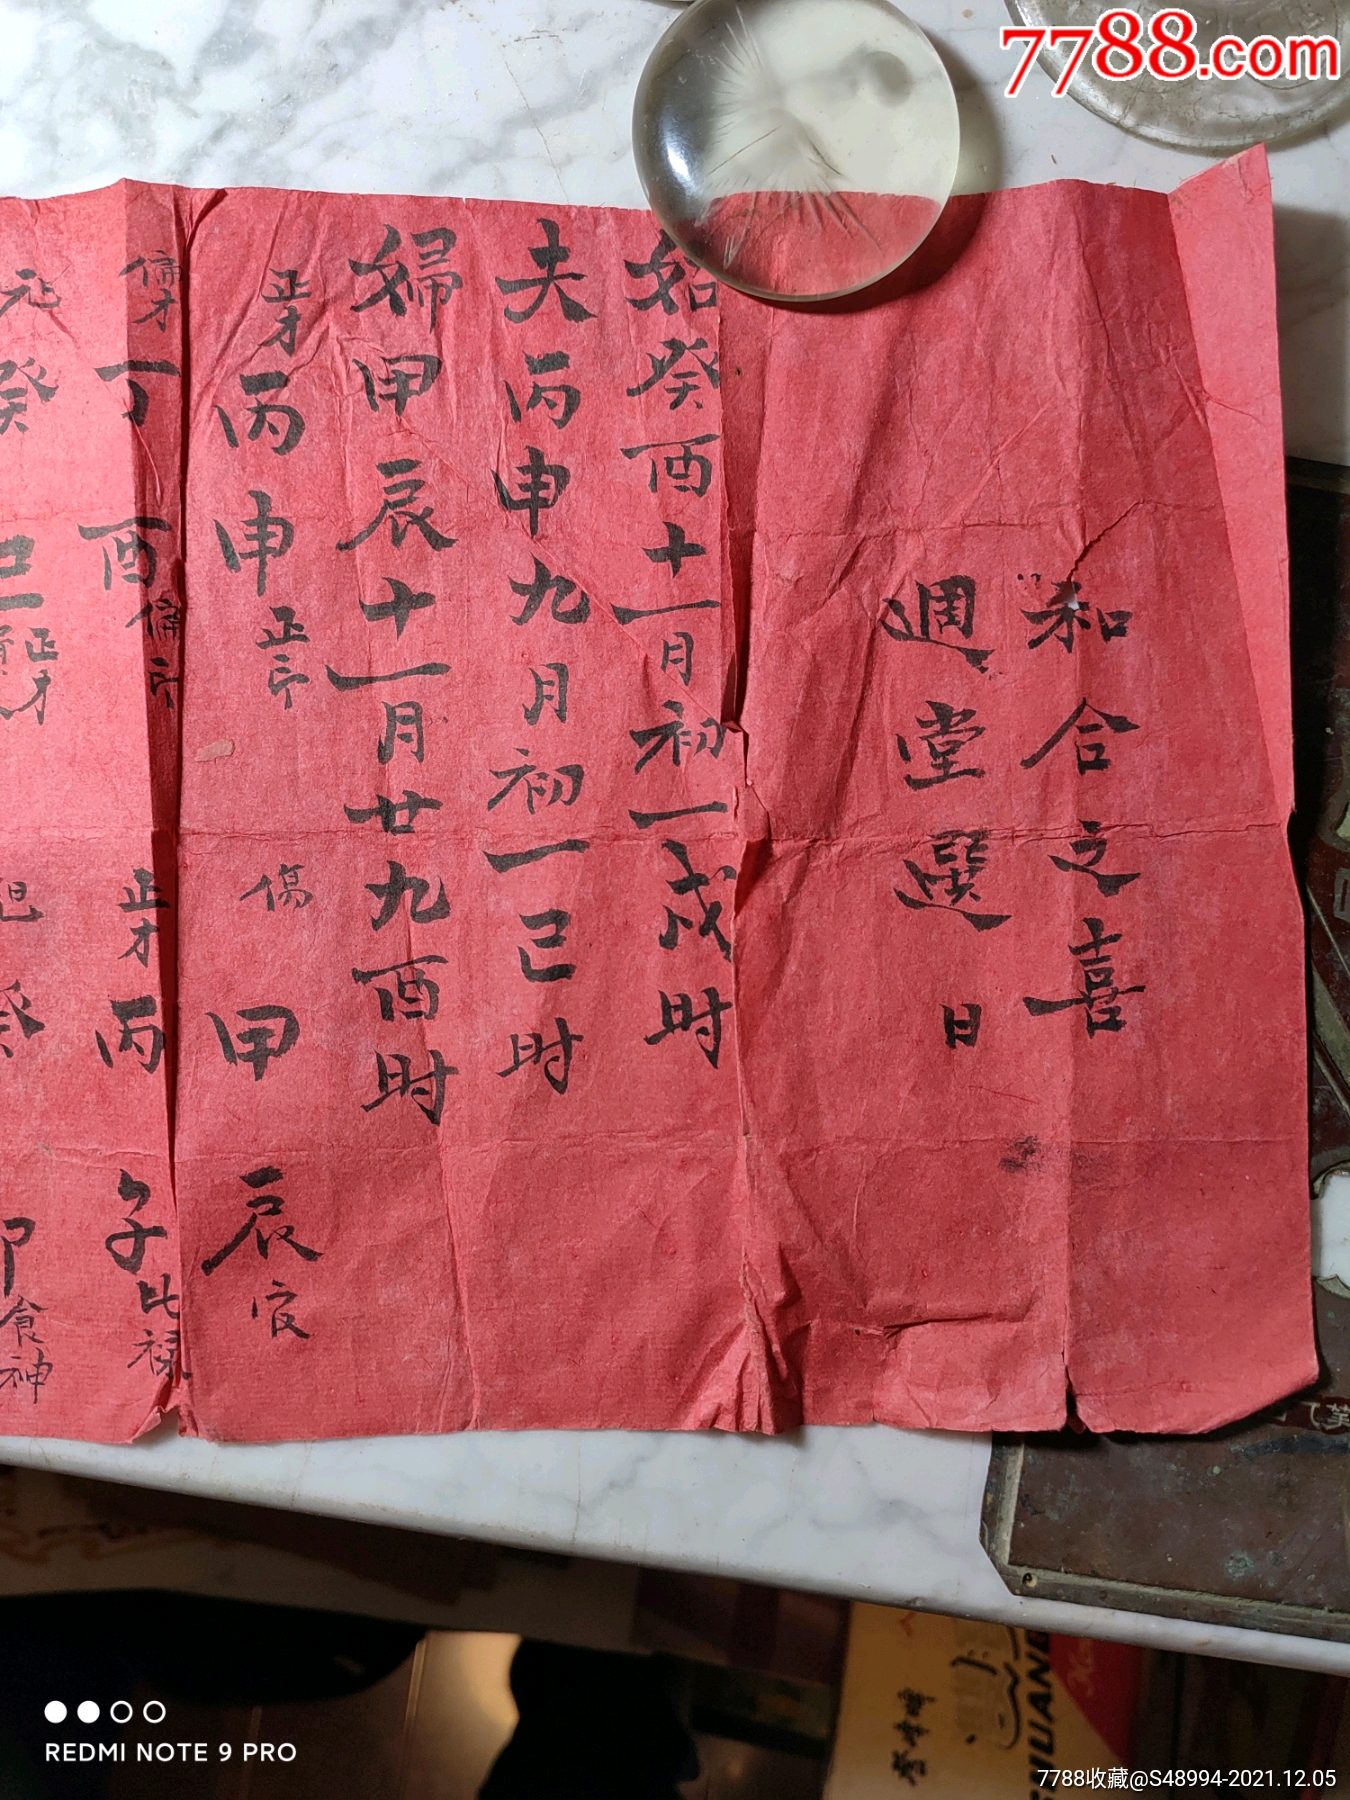 7788.com
和合之喜
週堂選日
姑癸酉十一月初一戌时
夫丙申九月初一巳时
婦甲辰十一月廿九酉时
正才丙申正卩 傷甲辰官
偏才丁酉偏卩 正才丙子比禄
元癸 正才 癸卯食神
REDMI NOTE 9 PRO
7788收藏@S48994-2021.12.05